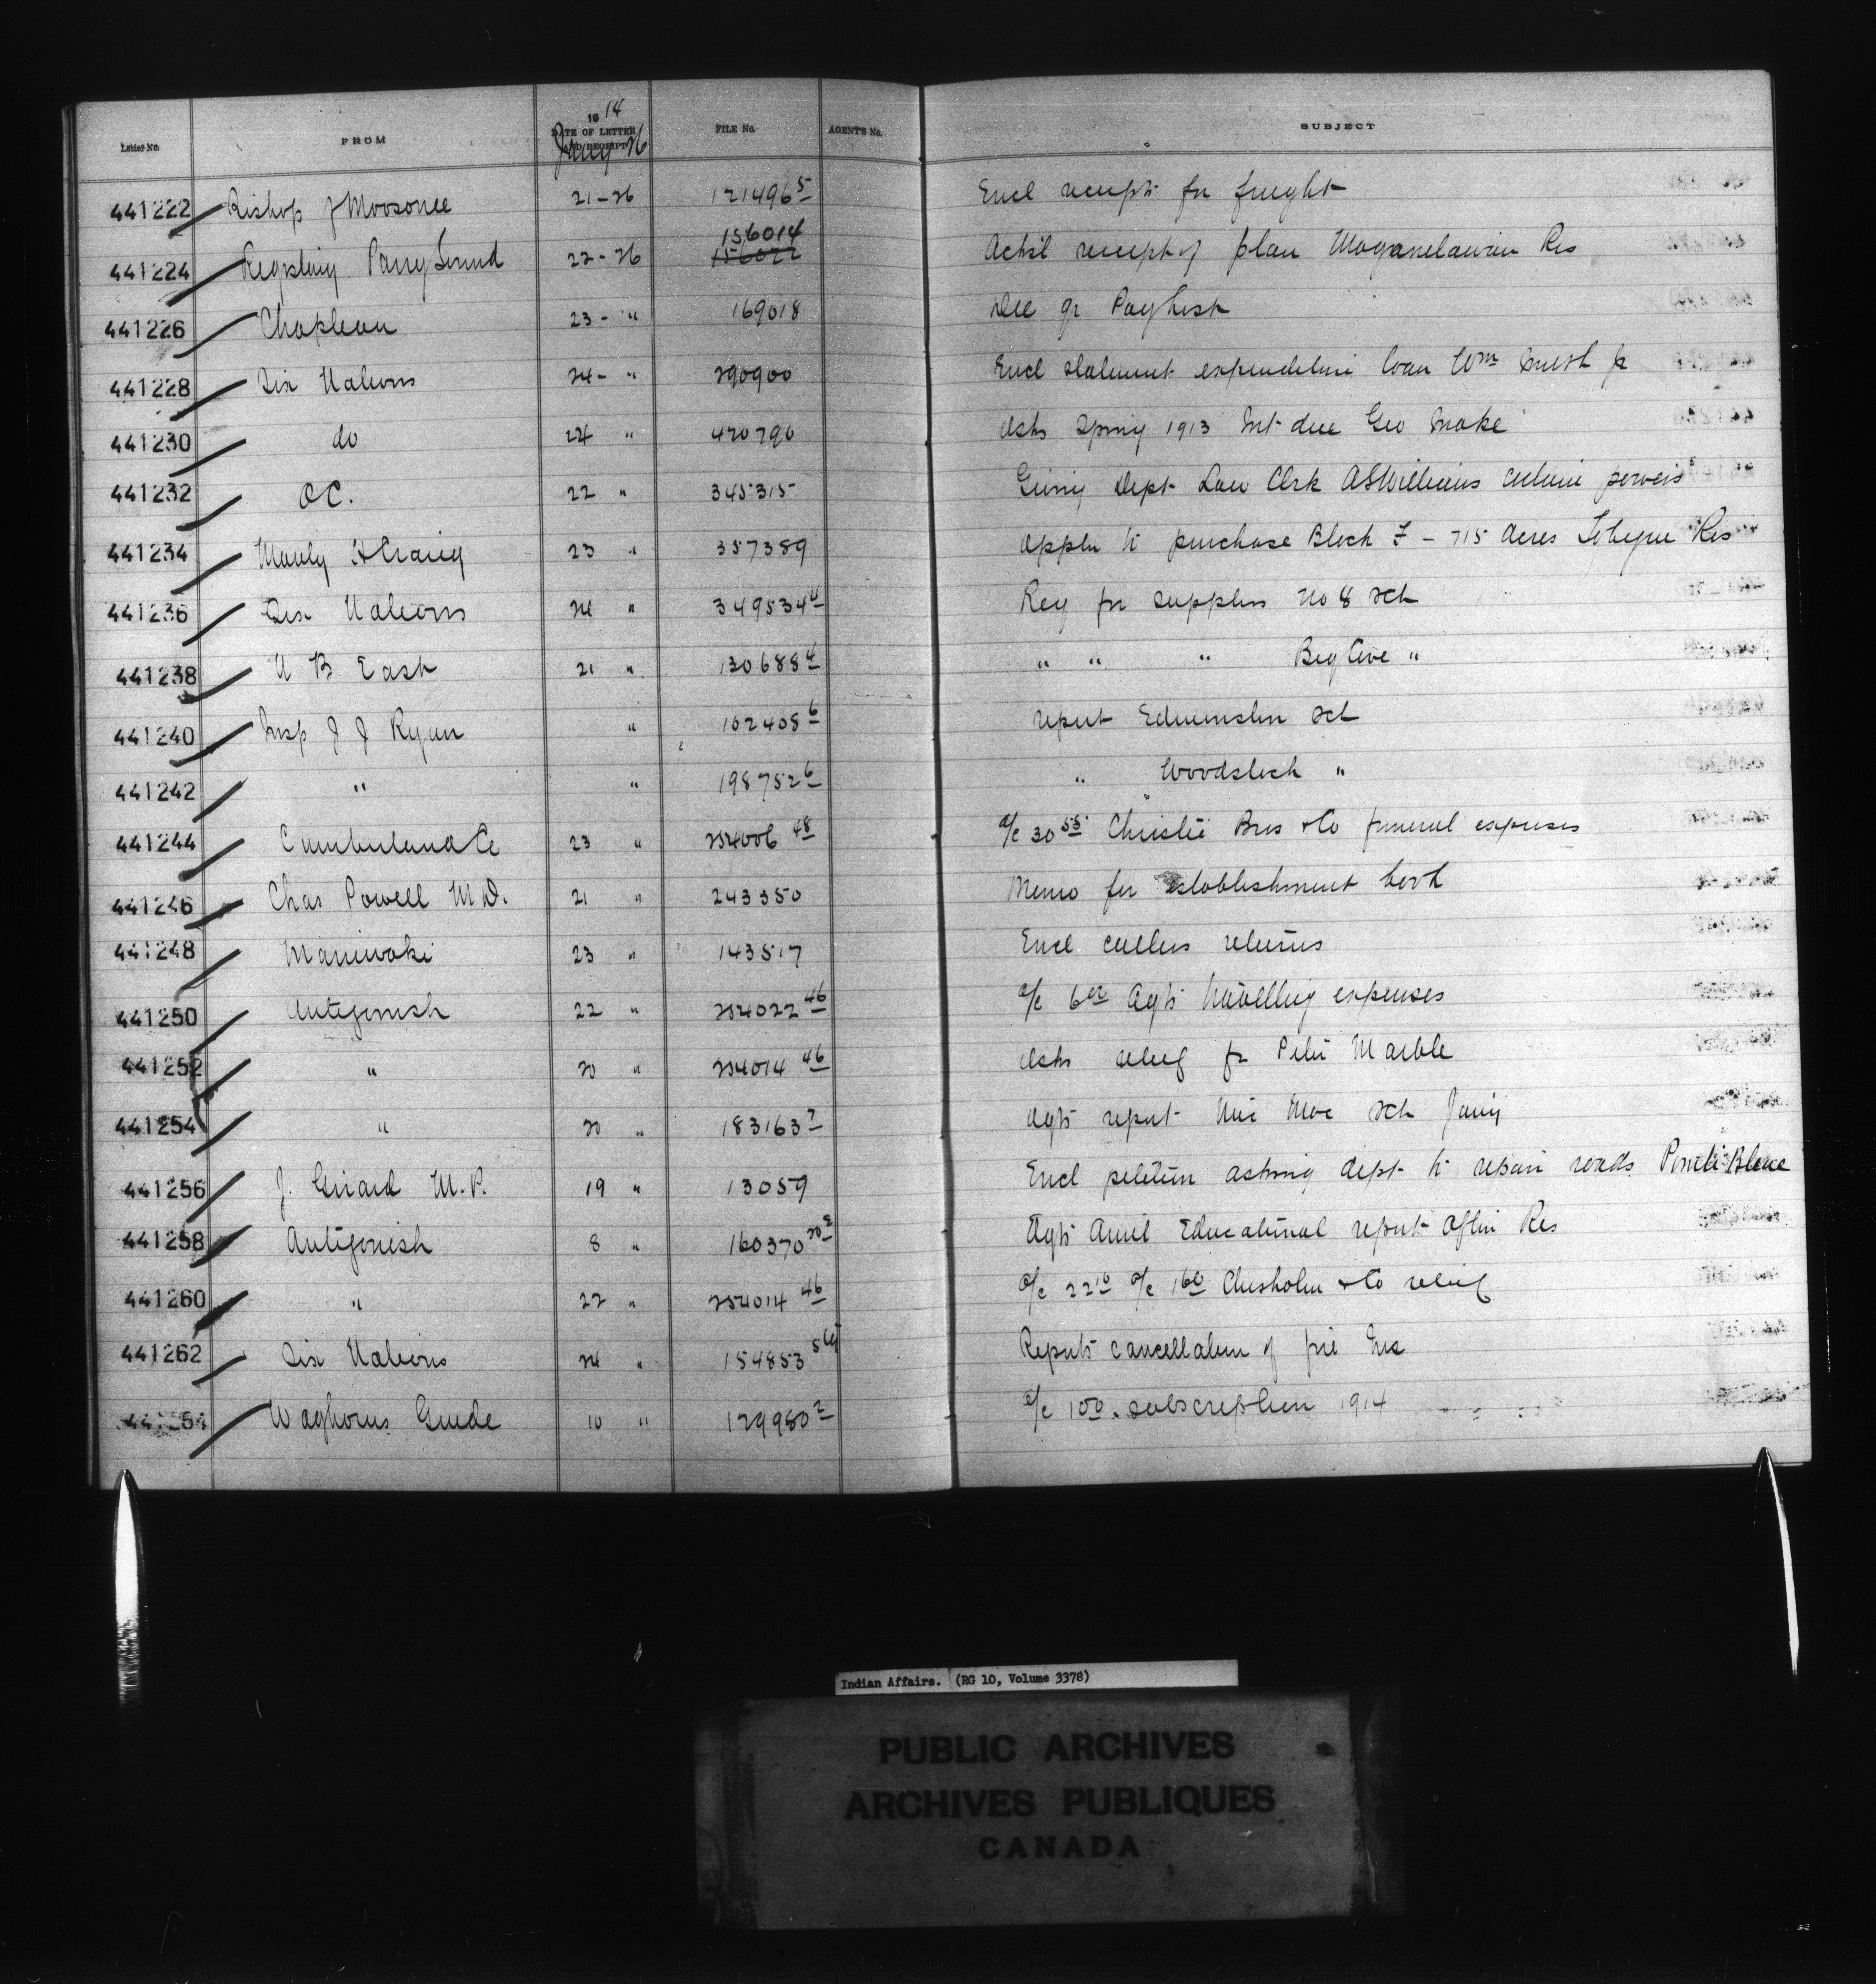 Letter No. FROM 1914 DATE OF LETTER AND RECEIPT Jany 26 FILE No. AGENT'S No. SUBJECT
441222 Bishop of Moosonee 21-26 121496 5 Encl receipts for freight
441224 Registry Parry Sound 22-26 156014 156022 Ackl receipt of plan Res
441226 Chapleau 23- " 169018 Dec qr Paylist
441228 Six Nations 24- " 290900 Encl statement expenditure loan Wm Smith Jr
441230 do 24 " 420790 Asks Spring 1913 Int due Geo Snake
441232 OC. 22 " 345315 Giving Dept Law Clrk AS Williams certain powers
441234 Manly Craig 23 " 357389 Appln to purchase Block F - 715 Acres Tobique Res
441236 Six Nations 24 " 349534 4 Req for supplies No 8 Sch
441238 N B East 21 " 130688 4 " " " Big Cove "
441240 Insp J J Ryan " 162408 6 report Edmunston Sch
441242 " " 198752 6 " Woodstock "
441244 Cumberland Co 23 " 254006 48 a/c 30 55 Christie Bros & Co funeral expenses
441246 Chas Powell M D. 21 " 243350 Memo for establishment book
441248 Maniwaki 23 " 143517 Encl cullers returns
441250 Antigonish 22 " 254022 46 a/c 6 Agts travelling expenses
441252 " 20 " 254014 46 Asks relief for Peter Marble
441254 " 20 " 183163 2 Agts report Mic Mac Sch Jany
441256 J. Girard M.P. 19 " 13059 Encl petition asking dept to repair roads Pointe Bleue
441258 Antigonish 8 " 160370 20 2 Agts Annl Educational report Afton Res
441260 " 22 " 254014 46 a/c 22 10 a/c 1 60 Chisholm & Co relief
441262 Six Nations 24 " 154853 Reports cancellation of fire Ins
441264 Waghorns Guide 10 " 129980 2 a/c 1 00. subscription 1914
Indian Affairs. (RG 10, Volume 3378)
PUBLIC ARCHIVES
ARCHIVES PUBLIQUES
CANADA